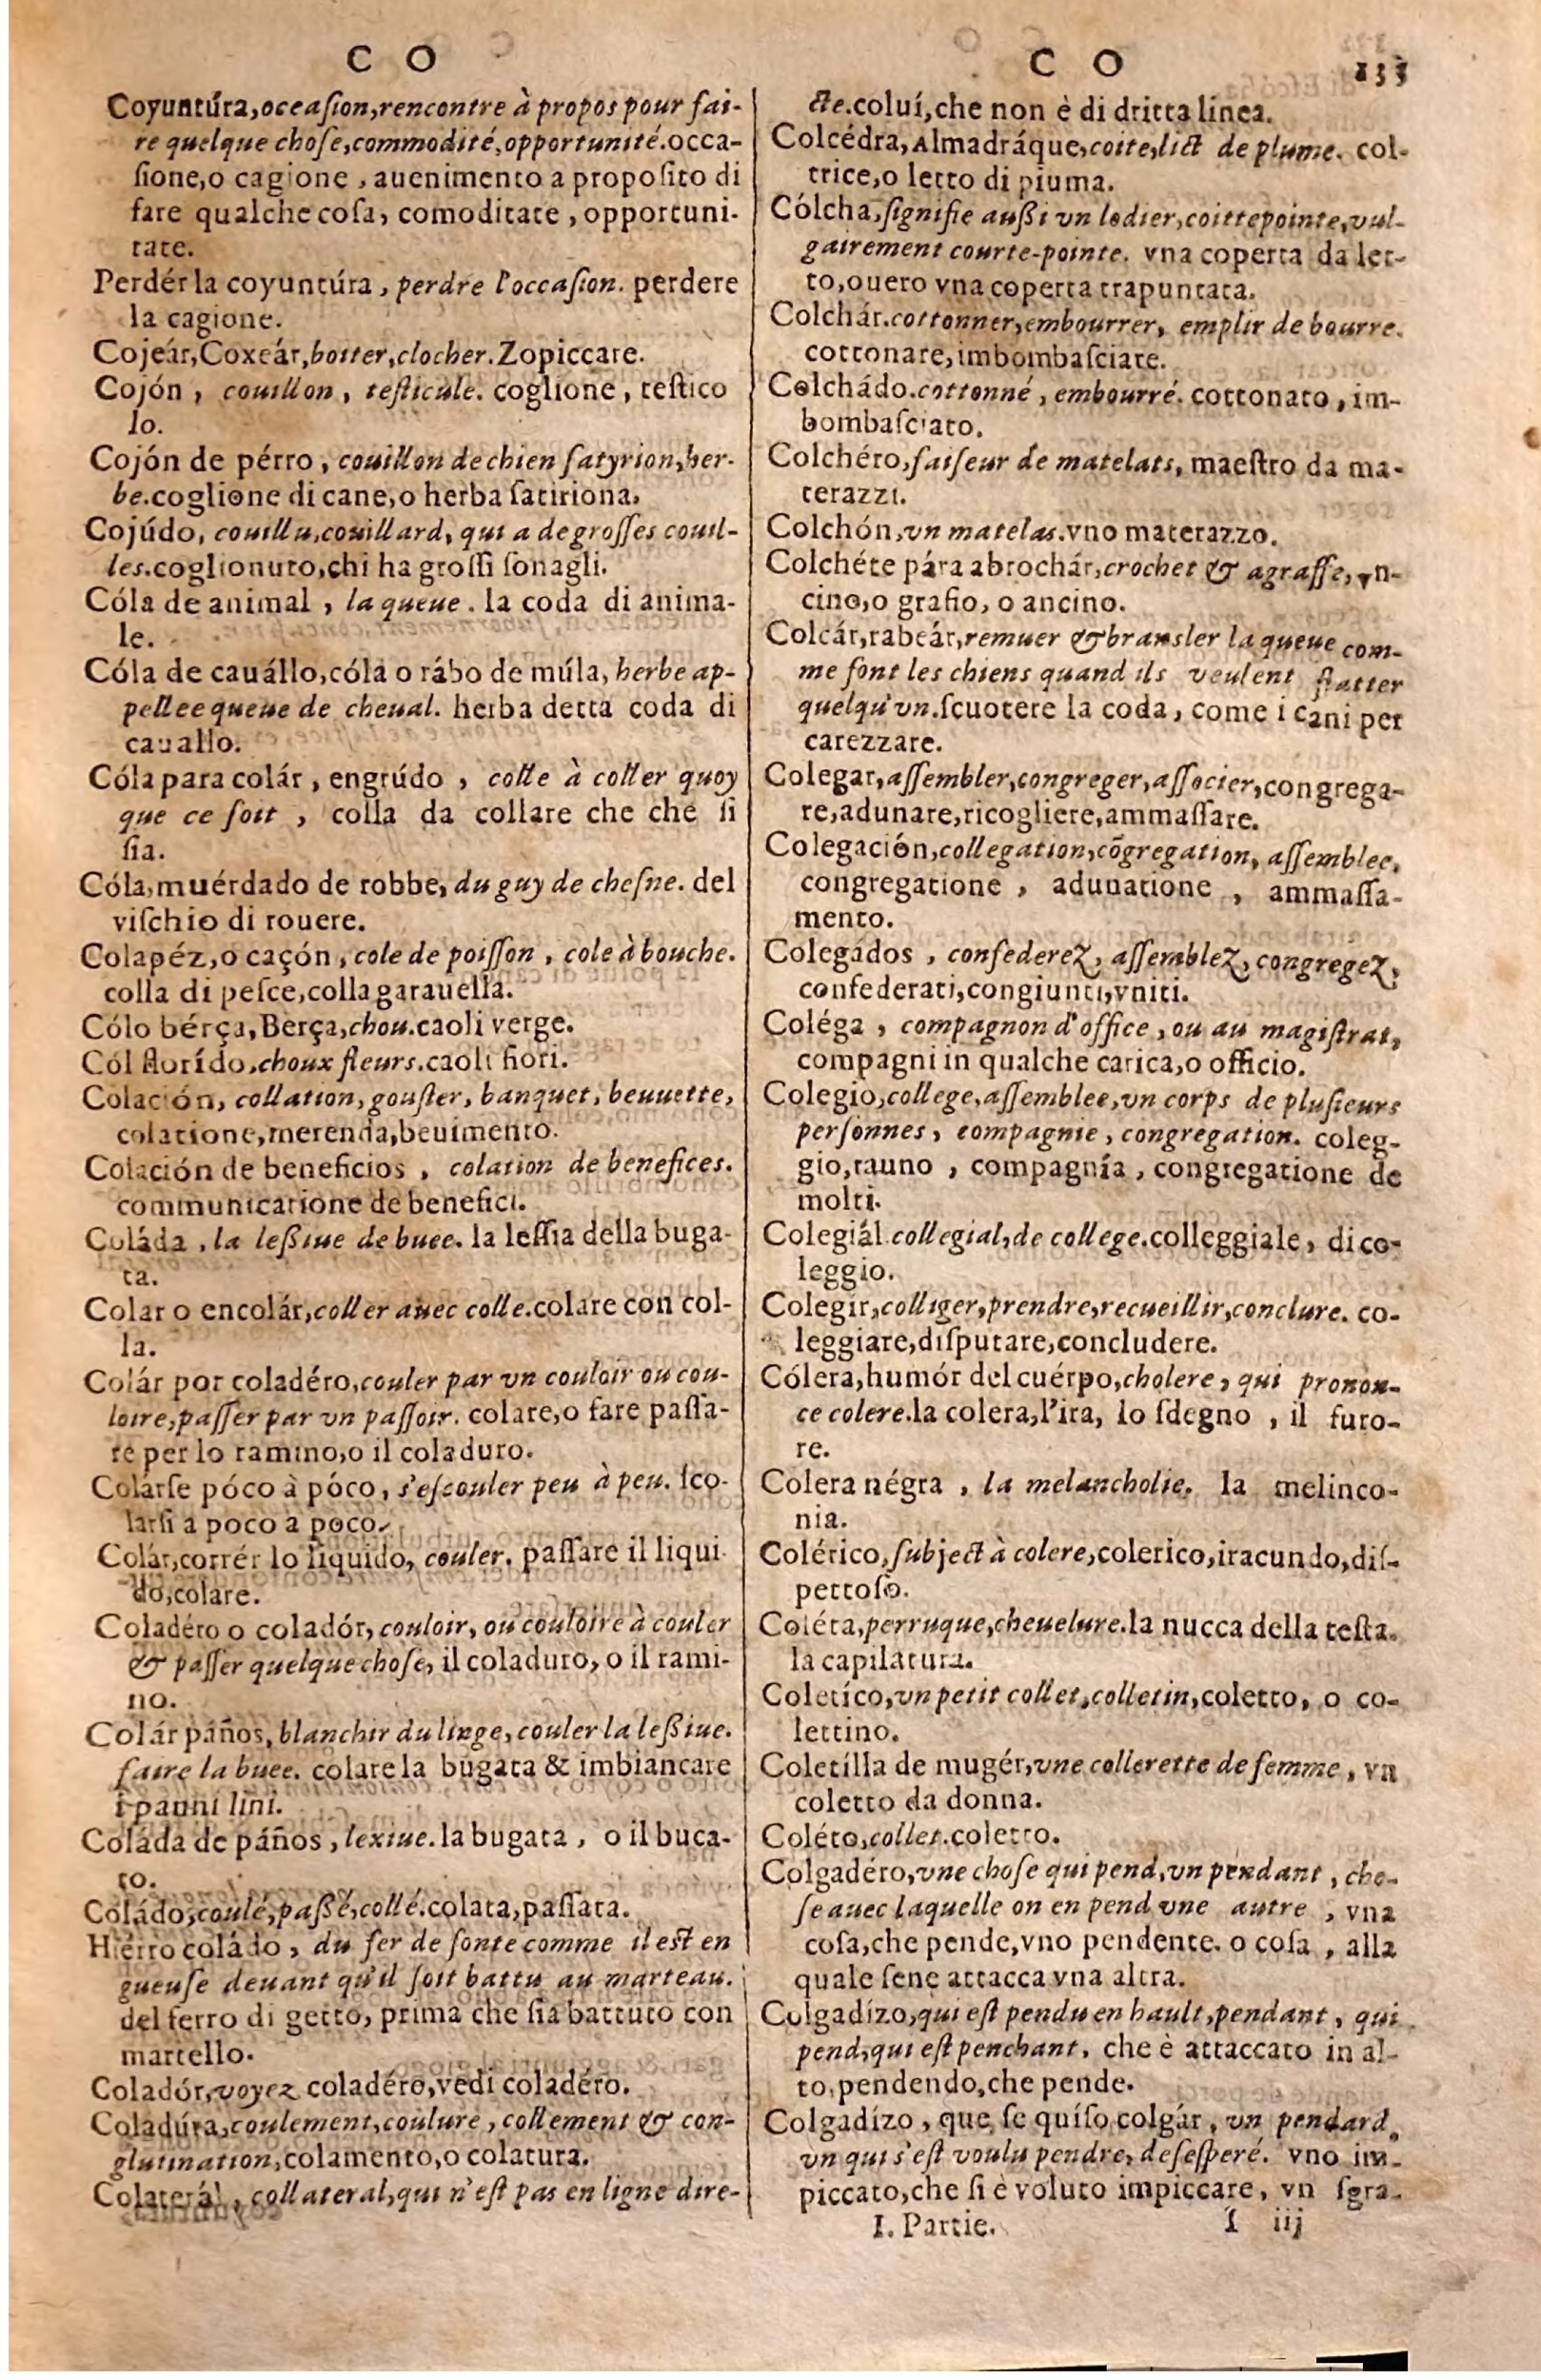 C O
Coyuntúra, occasion, rencontre à propos pour fai-
re quelque chose, commodité, opportunité. occa-
sione, o cagione, auenimento a proposito di
fare qualche cosa, comoditate, opportuni-
tate.
Perdér la coyuntúra, perdre l'occasion. perdere
la cagione.
Cojeár, Coxeár, boiter, clocher. Zopiccare.
Cojón, couillon, testicule. coglione, testico
lo.
Cojón de pérro, couillon de chien satyrion, her-
be. coglione di cane, o herba satiriona.
Cojúdo, couillu, couillard, qui a de grosses couil-
les. coglionuto, chi ha grossi sonagli.
Cóla de animal, la queue. la coda di anima-
le.
Cóla de cauállo, cóla o rábo de múla, herbe ap-
pellee queue de cheual. herba detta coda di
cauallo.
Cóla para colár, engrúdo, colle à coller quoy
que ce soit, colla da collare che che si
sia.
Cóla, muérdado de robbe, du guy de chesne. del
vischio di rouere.
Colapéz, o caçón, cole de poisson, cole à bouche.
colla di pesce, colla garauella.
Cólo bérça, Berça, chou. caoli verge.
Cól florído, choux fleurs. caoli fiori.
Colación, collation, gouster, banquet, beuuette,
colatione, merenda, beuimento.
Colación de beneficios, colation de benefices.
communicatione de benefici.
Coláda, la leßiue de buee. la lessia della buga-
ta.
Colar o encolár, coller auec colle. colare con col-
la.
Colár por coladéro, couler par vn couloir ou cou-
loire, passer par vn passoir. colare, o fare passa-
re per lo ramino, o il coladuro.
Colárse póco à póco, s'escouler peu à peu. sco-
larsi a poco a poco.
Colár, corrér lo liquido, couler. passare il liqui
do, colare.
Coladéro o coladór, couloir, ou couloire à couler
& passer quelque chose, il coladuro, o il rami-
no.
Colár páños, blanchir du linge, couler la leßiue.
faire la buee. colare la bugata & imbiancare
i panni lini.
Coláda de páños, lexiue. la bugata, o il buca-
to.
Coládo, coulé, passé, collé. colata, passata.
Hiérro coládo, du fer de fonte comme il est en
gueuse deuant qu'il soit battu au marteau.
del ferro di getto, prima che sia battuto con
martello.
Coladór, voyez coladéro, vedi coladéro.
Coladúra, coulement, coulure, collement & con-
glutination, colamento, o colatura.
Colaterál, collateral, qui n'est pas en ligne dire-
C O 133
cte. coluí, che non è di dritta linea.
Colcédra, Almadráque, coite, lict de plume. col-
trice, o letto di piuma.
Cólcha, signifie außi vn lodier, coittepointe, vul-
gairement courte-pointe. vna coperta da let-
to, ouero vna coperta trapuntata.
Colchár. cottonner, embourrer, emplir de bourre.
cottonare, imbombasciate.
Colchádo. cottonné, embourré. cottonato, im-
bombasciato.
Colchéro, faiseur de matelats, maestro da ma-
terazzi.
Colchón, vn matelas. vno materazzo.
Colchéte pára abrochár, crochet & agraffe, vn-
cino, o grafio, o ancino.
Colcár, rabeár, remuer & bransler la queue com-
me font les chiens quand ils veulent flatter
quelqu'vn. scuotere la coda, come i cani per
carezzare.
Colegar, assembler, congreger, associer, congrega-
re, adunare, ricogliere, ammassare.
Colegación, collegation, cõgregation, assemblee.
congregatione, adunatione, ammassa-
mento.
Colegádos, confederez, assemblez, congregez,
confederati, congiunti, vniti.
Coléga, compagnon d'office, ou au magistrat,
compagni in qualche carica, o officio.
Colegio, college, assemblee, vn corps de plusieurs
personnes, compagnie, congregation. coleg-
gio, rauno, compagnía, congregatione de
molti.
Colegiál collegial, de college. colleggiale, di co-
leggio.
Colegir, colliger, prendre, recueillir, conclure. co-
leggiare, disputare, concludere.
Cólera, humór del cuérpo, cholere, qui pronon-
ce colere. la colera, l'ira, lo sdegno, il furo-
re.
Colera négra, la melancholie. la melinco-
nia.
Colérico, subject à colere, colerico, iracundo, dis-
pettoso.
Coléta, perruque, cheuelure. la nucca della testa.
la capilatura.
Coletíco, vn petit collet, colletin, coletto, o co-
lettino.
Coletílla de mugér, vne collerette de femme, vn
coletto da donna.
Coléto, collet. coletto.
Colgadéro, vne chose qui pend, vn pendant, cho-
se auec laquelle on en pend vne autre, vna
cosa, che pende, vno pendente. o cosa, alla
quale sene attacca vna altra.
Colgadízo, qui est pendu en hault, pendant, qui
pend, qui est penchant. che è attaccato in al-
to, pendendo, che pende.
Colgadízo, que se quíso colgár, vn pendard,
vn qui s'est voulu pendre, desesperé. vno im-
piccato, che si è voluto impiccare, vn sgra-
I. Partie. I iij